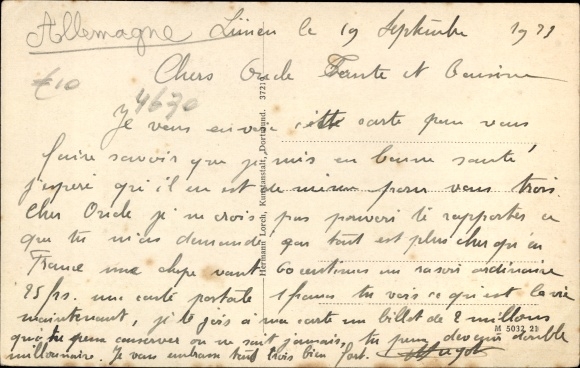 Allemagne
Lünen le 19 Septembre 1923
€10
4670
Chers Oncle Tante et Cousine
Je vous envoie cette carte pour vous
faire savoir que je suis en bonne santé
j'espère qu'il en est de même pour vous trois.
Cher Oncle je ne crois pas pouvoir te rapporter ce
que tu m'as demandé, que tout est plus cher qu'en
France une chope vaut 60 centimes un rasoir ordinaire
25 frs. une carte postale 1 franc tu vois ce qu'est la vie
maintenant, je te joins à ma carte un billet de 2 millions
que tu peux conserver on ne sait jamais, tu peux devenir double
millionnaire. Je vous embrasse tous trois bien fort.
Hermann Lorch, Kunstanstalt, Dortmund. 37219
M 5032 21